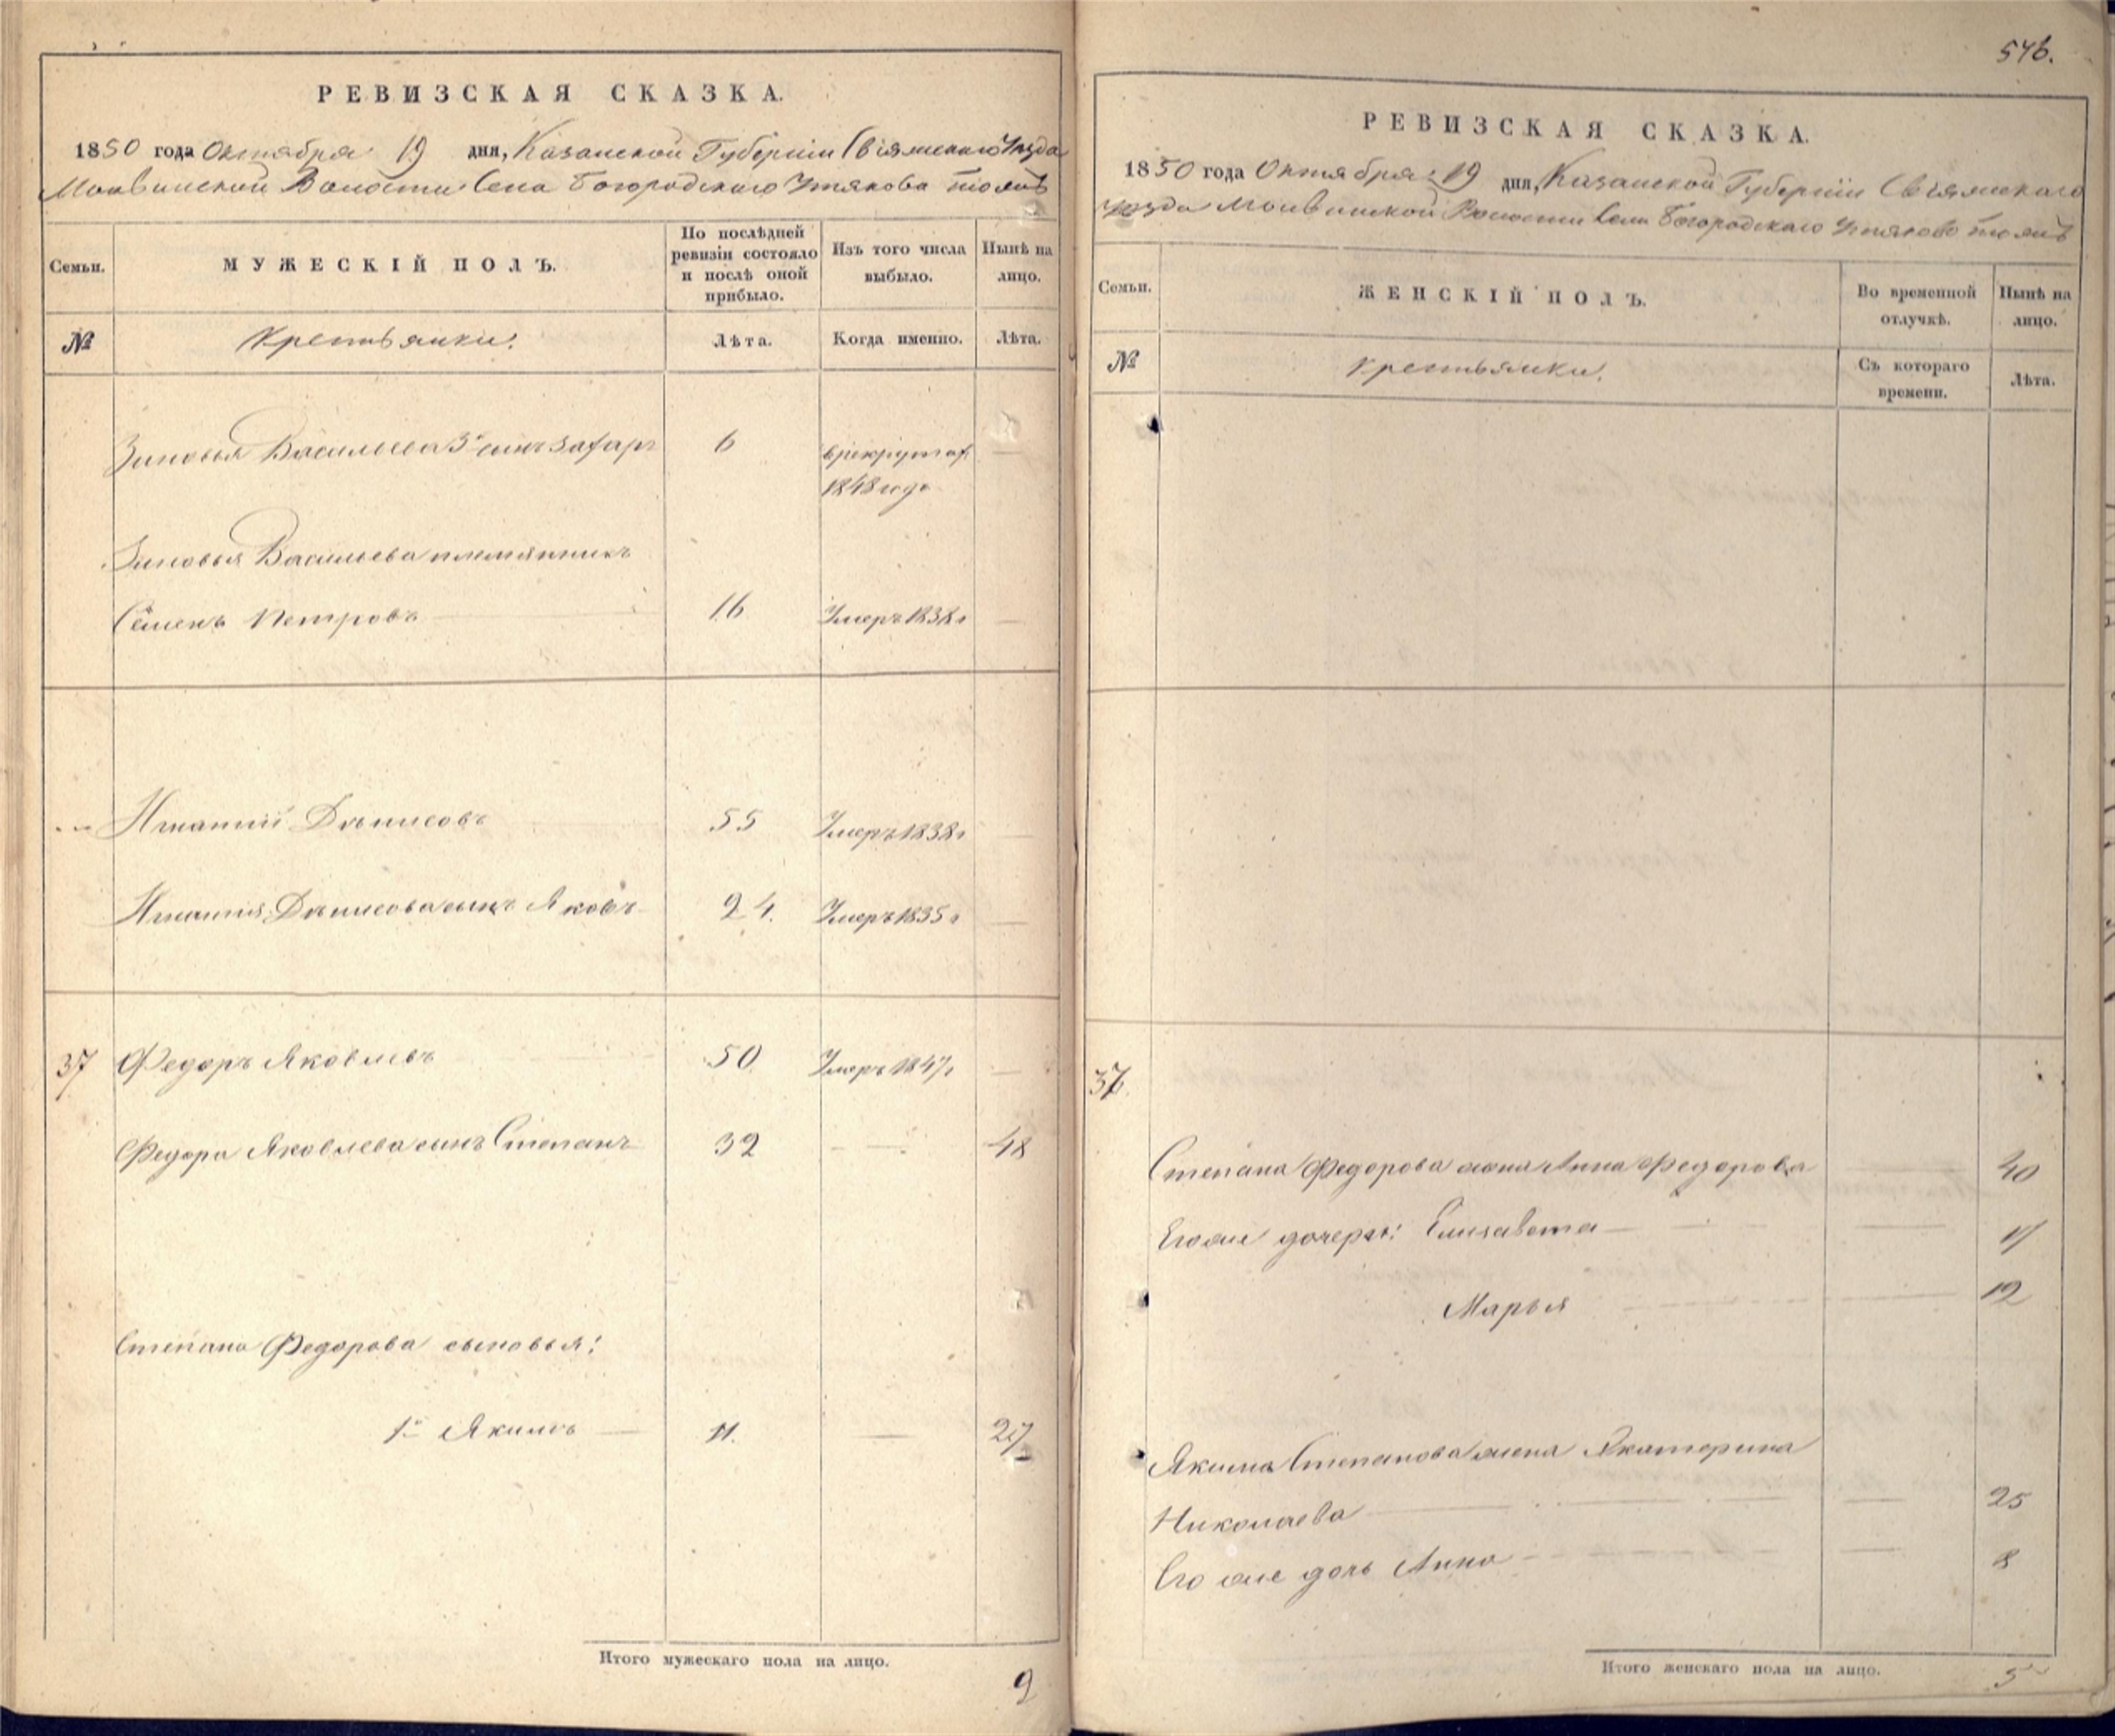 РЕВИЗСКАЯ СКАЗКА.
1850 года Октября 19 дня, Казанской Губерніи Свіяжскаго Уезда
Волости Села Богородскаго Утякова тожъ
Семьи.
МУЖЕСКІЙ ПОЛЪ.
По послѣдней
ревизіи состояло
и послѣ оной
прибыло.
Изъ того числа
выбыло.
Нынѣ на
лицо.
№
Крестьянки.
Лѣта.
Когда именно.
Лѣта.
Зиновья Васильева 3й сынъ Захаръ 6 в рекрутах
1848 года
Зиновья Васильева племянникъ
Семенъ Петровъ 16 Умеръ 1838 г
Игнатий Денисовъ 55 Умеръ 1838 г
Игнатия Денисова сынъ Яковъ 24. Умеръ 1835 г
37 Федоръ Яковлевъ 50 Умеръ 1847 г
Федора Яковлева сынъ Степанъ 32 — 48
Степана Федорова сыновья:
1й Якимъ 11. — 27
Итого мужескаго пола на лицо.
2
546.
РЕВИЗСКАЯ СКАЗКА.
1850 года Октября 19 дня, Казанской Губерніи Свіяжскаго
Уезда Волости Села Богородскаго Утяково тожъ
Семьи.
ЖЕНСКІЙ ПОЛЪ.
Во временной
отлучкѣ.
Нынѣ на
лицо.
№
Крестьянки.
Съ котораго
времени.
Лѣта.
37
Степана Федорова жена Анна Федорова 40
Его же дочери: Елизавета 17
Марья 12
Якима Степанова жена Екатерина
Николаева 25
Его же дочь Анна 8
Итого женскаго пола на лицо.
5